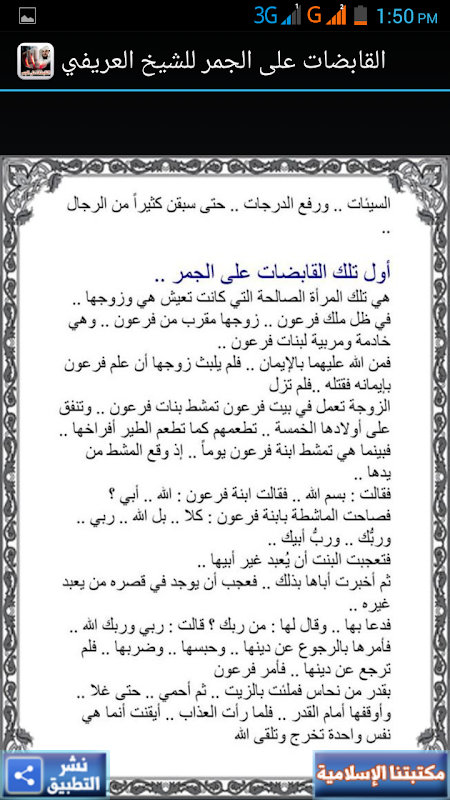 3G G 1:50 PM
القابضات على الجمر للشيخ العريفي
السيئات .. ورفع الدرجات .. حتى سبقن كثيراً من الرجال
..
أول تلك القابضات على الجمر ..
هي تلك المرأة الصالحة التي كانت تعيش هي وزوجها ..
في ظل ملك فرعون .. زوجها مقرب من فرعون .. وهي
خادمة ومربية لبنات فرعون ..
فمن الله عليهما بالإيمان .. فلم يلبث زوجها أن علم فرعون
بإيمانه فقتله ..فلم تزل
الزوجة تعمل في بيت فرعون تمشط بنات فرعون .. وتنفق
على أولادها الخمسة .. تطعمهم كما تطعم الطير أفراخها ..
فبينما هي تمشط ابنة فرعون يوماً .. إذ وقع المشط من
يدها ..
فقالت : بسم الله .. فقالت ابنة فرعون : الله .. أبي ؟
فصاحت الماشطة بابنة فرعون : كلا .. بل الله .. ربي ..
وربُّك .. وربُّ أبيك ..
فتعجبت البنت أن يُعبد غير أبيها ..
ثم أخبرت أباها بذلك .. فعجب أن يوجد في قصره من يعبد
غيره ..
فدعا بها .. وقال لها : من ربك ؟ قالت : ربي وربك الله ..
فأمرها بالرجوع عن دينها .. وحبسها .. وضربها .. فلم
ترجع عن دينها .. فأمر فرعون
بقدر من نحاس فملئت بالزيت .. ثم أحمي .. حتى غلا ..
وأوقفها أمام القدر .. فلما رأت العذاب .. أيقنت أنما هي
نفس واحدة تخرج وتلقى الله
مكتبتنا الإسلامية
نشر
التطبيق